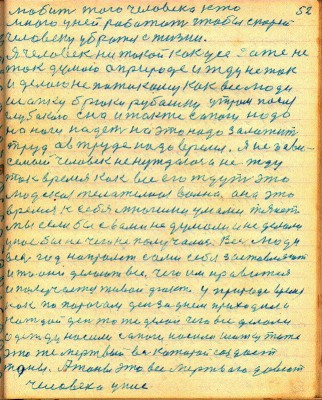 52
любит того человека кто
много у ней работает чтобы скорей
человеку убрати с жизни.
Я человек не такой как все я не
так думаю о природе и жду не так
и делаю не по такому как все люди
шапку брюки рубашку утром после
глубокого сна и также сапоги надо
на ноги надет на это надо заложит
труд а в труде надо время. Я не зави-
семый человек не нуждаюсь а не жду
так время как все его ждут это
людская желателная волна она это
время к себе многими умами тянет
мы если бы с вами не думали и не делали
у нас бы не чего не получалось. Все люди
весь год напролет сами себя заставляют
и то они делают все чего им нравится
и получается живой факт у природе время
как по порогам ден за днем приходил и
каждой ден то же делал чего все делали
одежду носили сапоги носили шапку тоже
это же мертвый в которой создает
тоны. А тоны это все мертвого давят
человека у нас